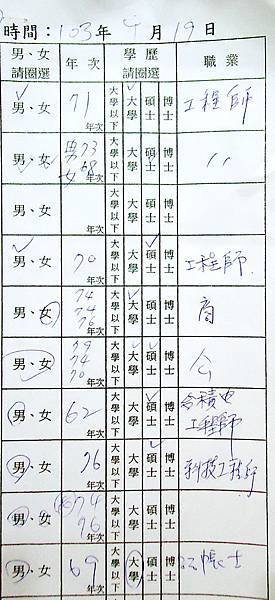 時間：103年 9月19日
男、女 年次 學歷 職業
請圈選 請圈選
男、女 71 年次 大學以下 大學 碩士 博士 工程師
男、女 男73 女68 年次 大學以下 大學 碩士 博士 〃
男、女 年次 大學以下 大學 碩士 博士
男、女 70 年次 大學以下 大學 碩士 博士 工程師
男、女 74 74 76 年次 大學以下 大學 碩士 博士 商
男、女 79 74 70 年次 大學以下 大學 碩士 博士 公
男、女 62 年次 大學以下 大學 碩士 博士 台積電 工程師
男、女 76 年次 大學以下 大學 碩士 博士 科技工程師
男、女 74 76 年次 大學以下 大學 碩士 博士
男、女 69 年次 大學以下 大學 碩士 博士